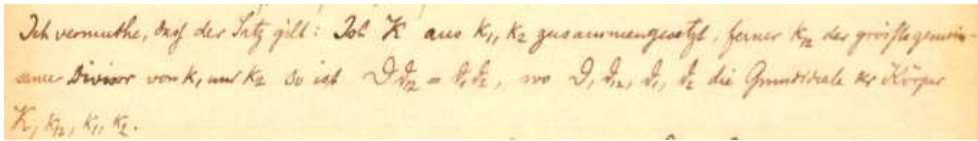 Ich vermuthe, dass der Satz gilt: Ist K aus k₁, k₂ zusammengesetzt, ferner k₁₂ der grösste gemein-
same Divisor von k₁ und k₂ so ist 𝔇 𝔡₁₂ = 𝔡₁𝔡₂, wo 𝔇, 𝔡₁₂, 𝔡₁, 𝔡₂ die Grundideale der Körper
K, k₁₂, k₁, k₂.